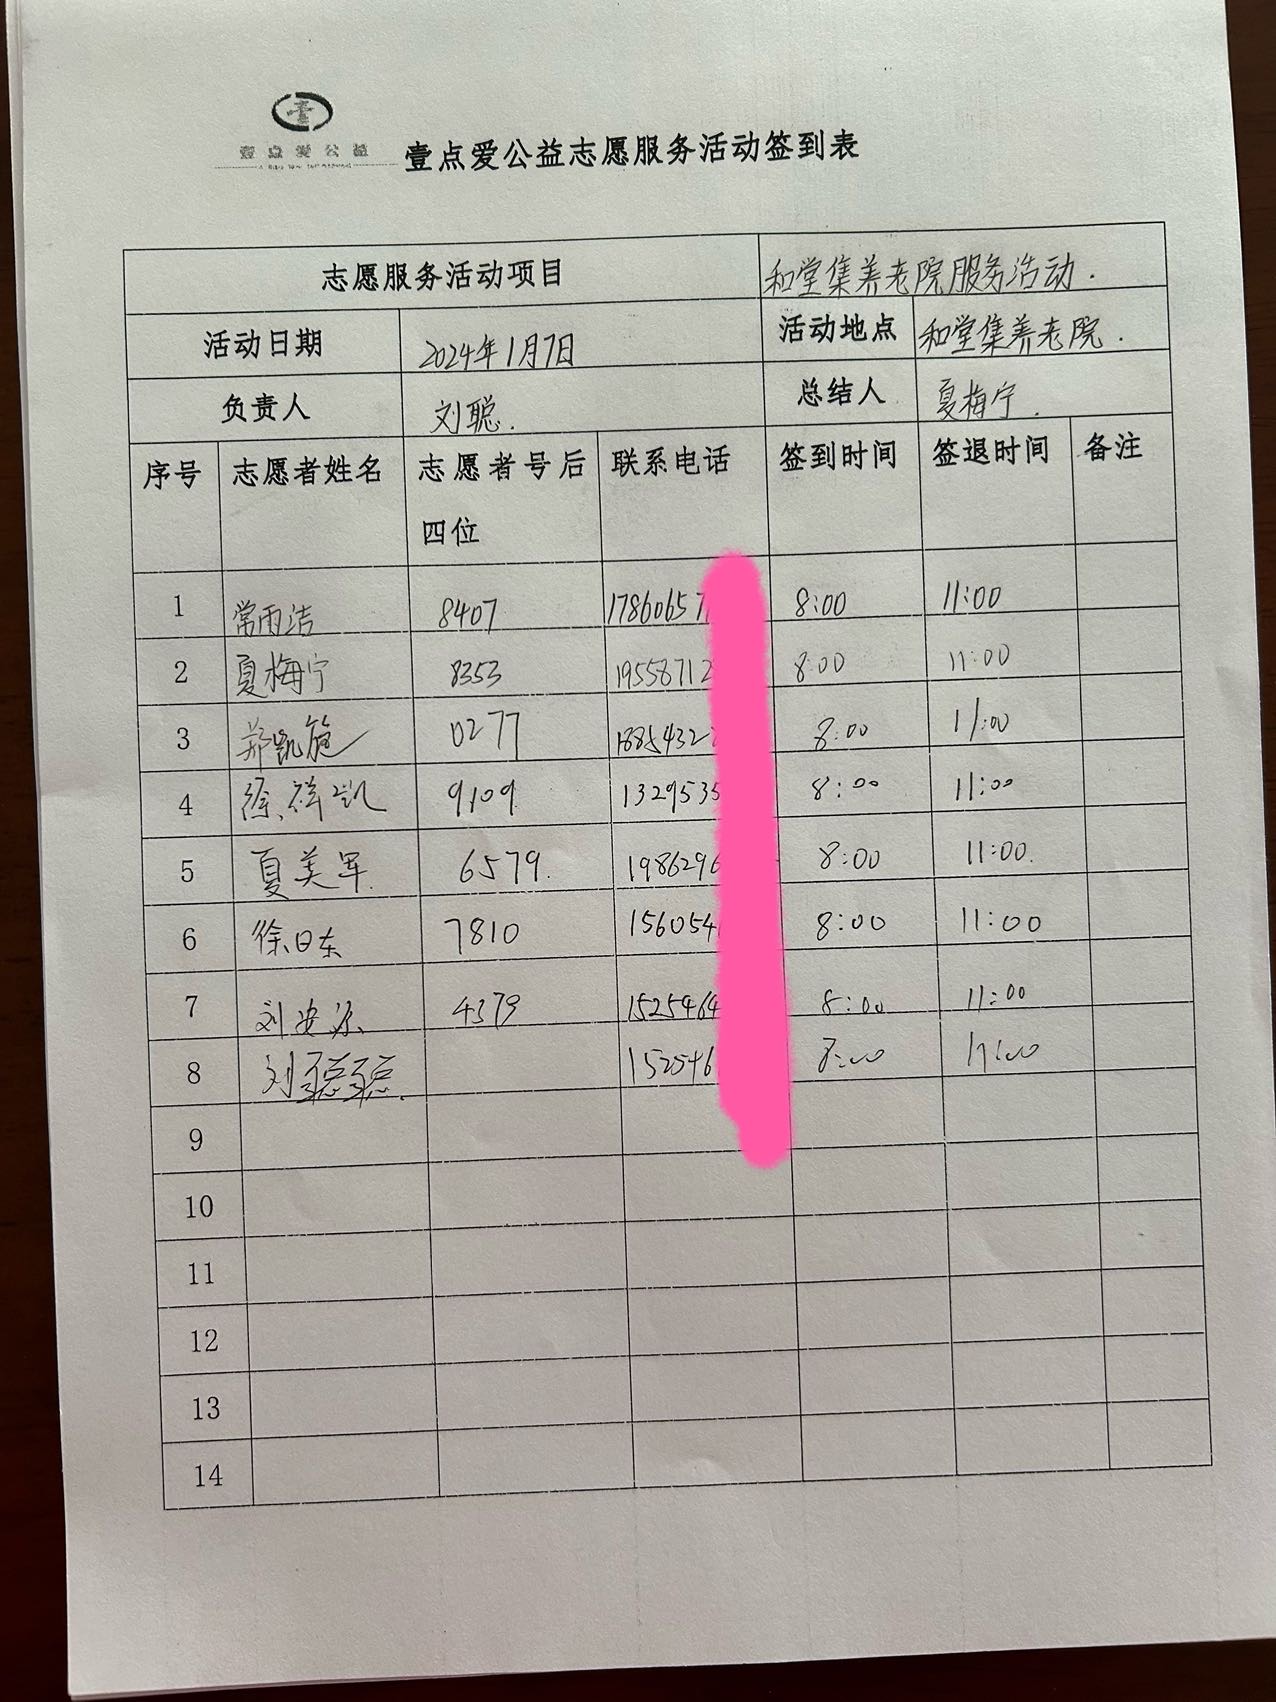 壹点爱公益
壹点爱公益志愿服务活动签到表
志愿服务活动项目 和堂集养老院服务活动.
活动日期 2024年1月7日 活动地点 和堂集养老院.
负责人 刘聪. 总结人 夏梅宁.
序号 志愿者姓名 志愿者号后四位 联系电话 签到时间 签退时间 备注
1 常雨洁 8407 1786065 8:00 11:00
2 夏梅宁 8353 19558712 8:00 11:00
3 郑凯 0277 1885432 8:00 11:00
4 徐祥凯 9109 1329535 8:00 11:00
5 夏美军 6579. 1986296 8:00 11:00.
6 徐日东 7810 156054 8:00 11:00
7 刘安 4379 1525464 8:00 11:00
8 刘聪聪. 152546 8:00 11:00
9
10
11
12
13
14